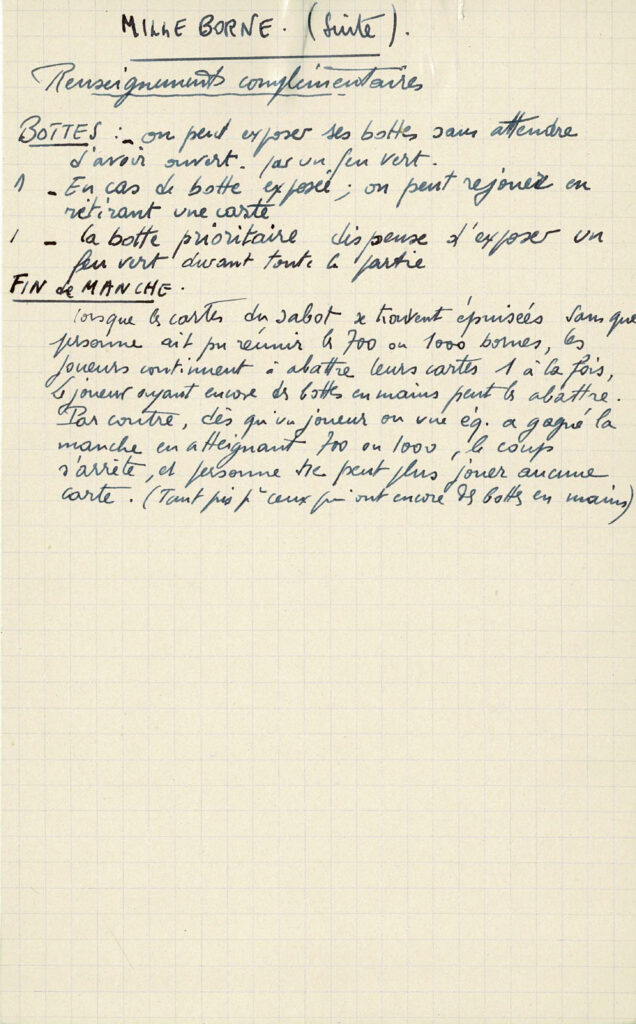 MILLE BORNE. (Suite).
Renseignements complémentaires
BOTTES : - on peut exposer ses bottes sans attendre
d'avoir ouvert. par un feu vert.
1 - En cas de botte exposée ; on peut rejouez en
retirant une carte
1 - la botte prioritaire dispense d'exposer un
feu vert durant toute la partie
FIN de MANCHE.
lorsque les cartes du sabot se trouvent épuisées sans que
personne ait pu réunir les 700 ou 1000 bornes, les
joueurs continuent à abattre leurs cartes 1 à la fois,
le joueur ayant encore des bottes en mains peut les abattre.
Par contre, dès qu'un joueur ou une éq. a gagné la
manche en atteignant 700 ou 1000, le coup
s'arrête, et personne ne peut plus jouer aucune
carte. (Tant pis pr ceux qui ont encore des bottes en mains)